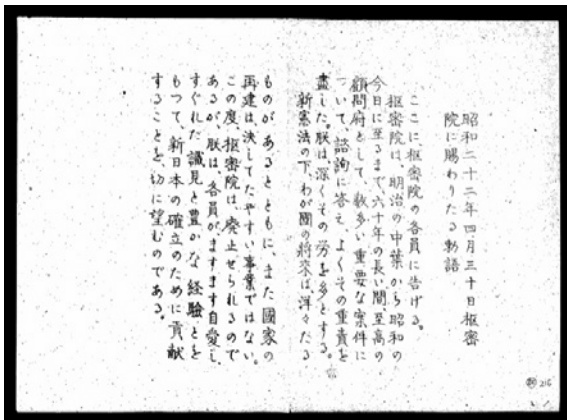 昭和二十二年四月三十日枢密
院に賜わりたる勅語
ここに枢密院の各員に告げる。
枢密院は、明治の中葉から昭和の
今日に至るまで六十年の長い間、至高の
顧問府として、数多い重要な案件に
ついて、諮詢に答え、よくその重責を
盡した。朕は、深くその労を多とする。
新憲法の下、わが國の将来は、洋々たる
ものがあるとともに、また國家の
再建は、決してたやすい事業ではない。
この度、枢密院は、廃止せられるので
あるが、朕は、各員がますます自愛し、
すぐれた識見と豊かな経驗とを
もつて、新日本の確立のために貢献
することを、切に望むのである。
216